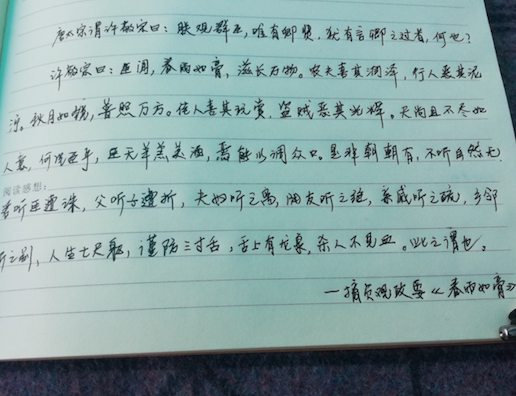 唐太宗谓许敬宗曰：朕观群臣，唯有卿贤，犹有言卿之过者，何也？
许敬宗曰：臣闻，春雨如膏，滋长万物。农夫喜其润泽，行人恶其泥
泞。秋月如镜，普照万方。佳人喜其玩赏，盗贼恶其光辉。天尚且不尽如
人意，何况臣乎，臣无羊羔美酒，焉能以调众口。是非朝朝有，不听自然无
阅读感想：
君听臣遭诛，父听子遭折，夫妇听之离，朋友听之绝，亲戚听之疏，乡邻
听之别，人生七尺躯，谨防三寸舌，舌上有龙泉，杀人不见血。此之谓也。
—摘贞观政要《春雨如膏》